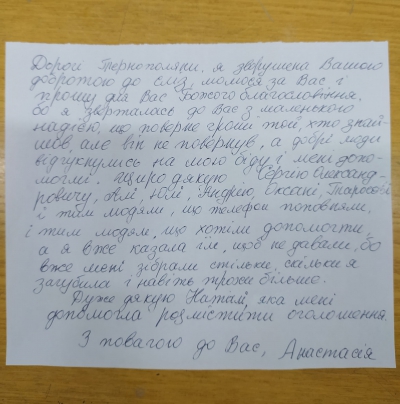 Дорогі Тернополяни, я зворушена Вашою
добротою до сліз, молюся за Вас, і
прошу для Вас Божого благословіння,
бо я зверталась до Вас з маленькою
надією, що поверне гроші той, хто знай-
шов, але він не повернув, а добрі люди
відгукнулись на мою біду і мені допо-
могли. Щиро дякую Сергію Олександ-
ровичу, Алі, Юлі, Андрію, Оксані, Тарасові
і тим людям, що телефон поповняли,
і тим людям, що хотіли допомогти
а я вже казала їм, щоб не давали, бо
вже мені зібрали стільки, скільки я
загубила і навіть трохе більше.
Дуже дякую Наталі, яка мені
допомогла розмістити оголошення.
З повагою до Вас, Анастасія